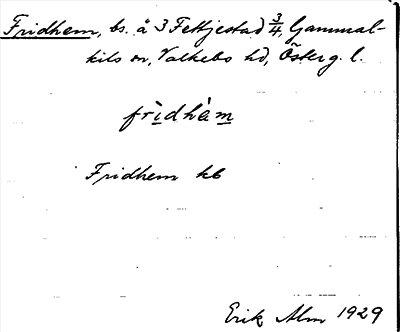 Fridhem, bs. å 3 Fettjestad 3/4, Gammal-
kils sn, Valkebo hd, Österg. l.
frìdhàm
Fridhem kb
Erik Alm 1929